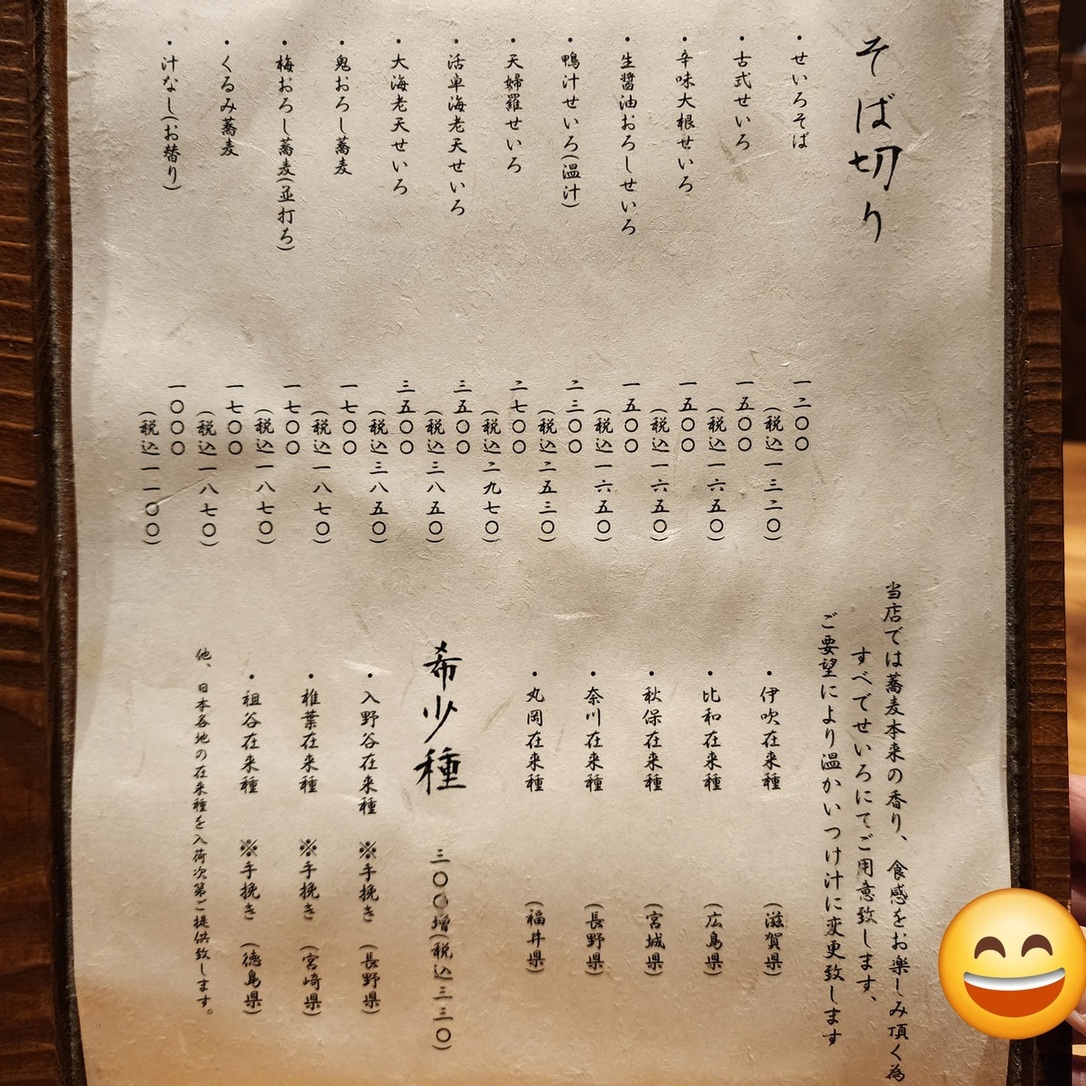 そば切り
・せいろそば 一二〇〇
(税込一三二〇)
・古式せいろ 一五〇〇
(税込一六五〇)
・辛味大根せいろ 一五〇〇
(税込一六五〇)
・生醤油おろしせいろ 一五〇〇
(税込一六五〇)
・鴨汁せいろ(温汁) 二三〇〇
(税込二五三〇)
・天婦羅せいろ 二七〇〇
(税込二九七〇)
・活車海老天せいろ 三五〇〇
(税込三八五〇)
・大海老天せいろ 三五〇〇
(税込三八五〇)
・鬼おろし蕎麦 一七〇〇
(税込一八七〇)
・梅おろし蕎麦(並打ち) 一七〇〇
(税込一八七〇)
・くるみ蕎麦 一七〇〇
(税込一八七〇)
・汁なし(お替り) 一〇〇〇
(税込一一〇〇)
当店では蕎麦本来の香り、食感をお楽しみ頂く為
すべてせいろにてご用意致します、
ご要望により温かいつけ汁に変更致します
・伊吹在来種 (滋賀県)
・比和在来種 (広島県)
・秋保在来種 (宮城県)
・奈川在来種 (長野県)
・丸岡在来種 (福井県)
希少種 三〇〇増(税込三三〇)
・入野谷在来種 ※手挽き (長野県)
・椎葉在来種 ※手挽き (宮崎県)
・祖谷在来種 ※手挽き (徳島県)
他、日本各地の在来種を入荷次第ご提供致します。